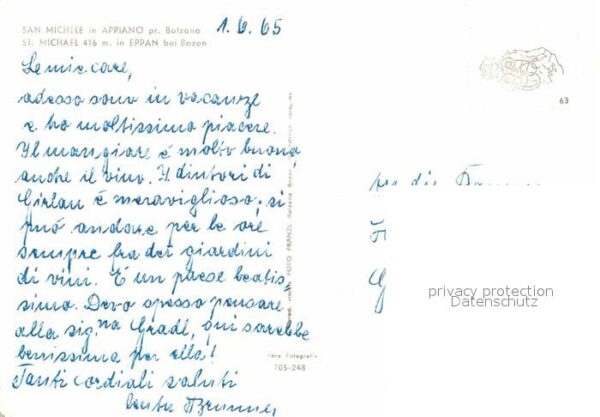 SAN MICHELE in APPIANO pr. Bolzano
ST. MICHAEL 416 m. in EPPAN bei Bozen
1.6.65
Le mie care,
adesso sono in vacanze
e ho moltissimo piacere.
Il mangiare é molto buono
anche il vino. I dintori di
Girlan é meraviglioso; si
può andare per le ore
sempre fra dei giardini
di vini. É un paese beatis=
simo. Devo spesso pensare
alla sig.na Gradl, qui sarebbe
benissima per ella!
Tanti cordiali saluti
Vera Fotografia
105-248
FOTO FRANZL
63
privacy protection
Datenschutz